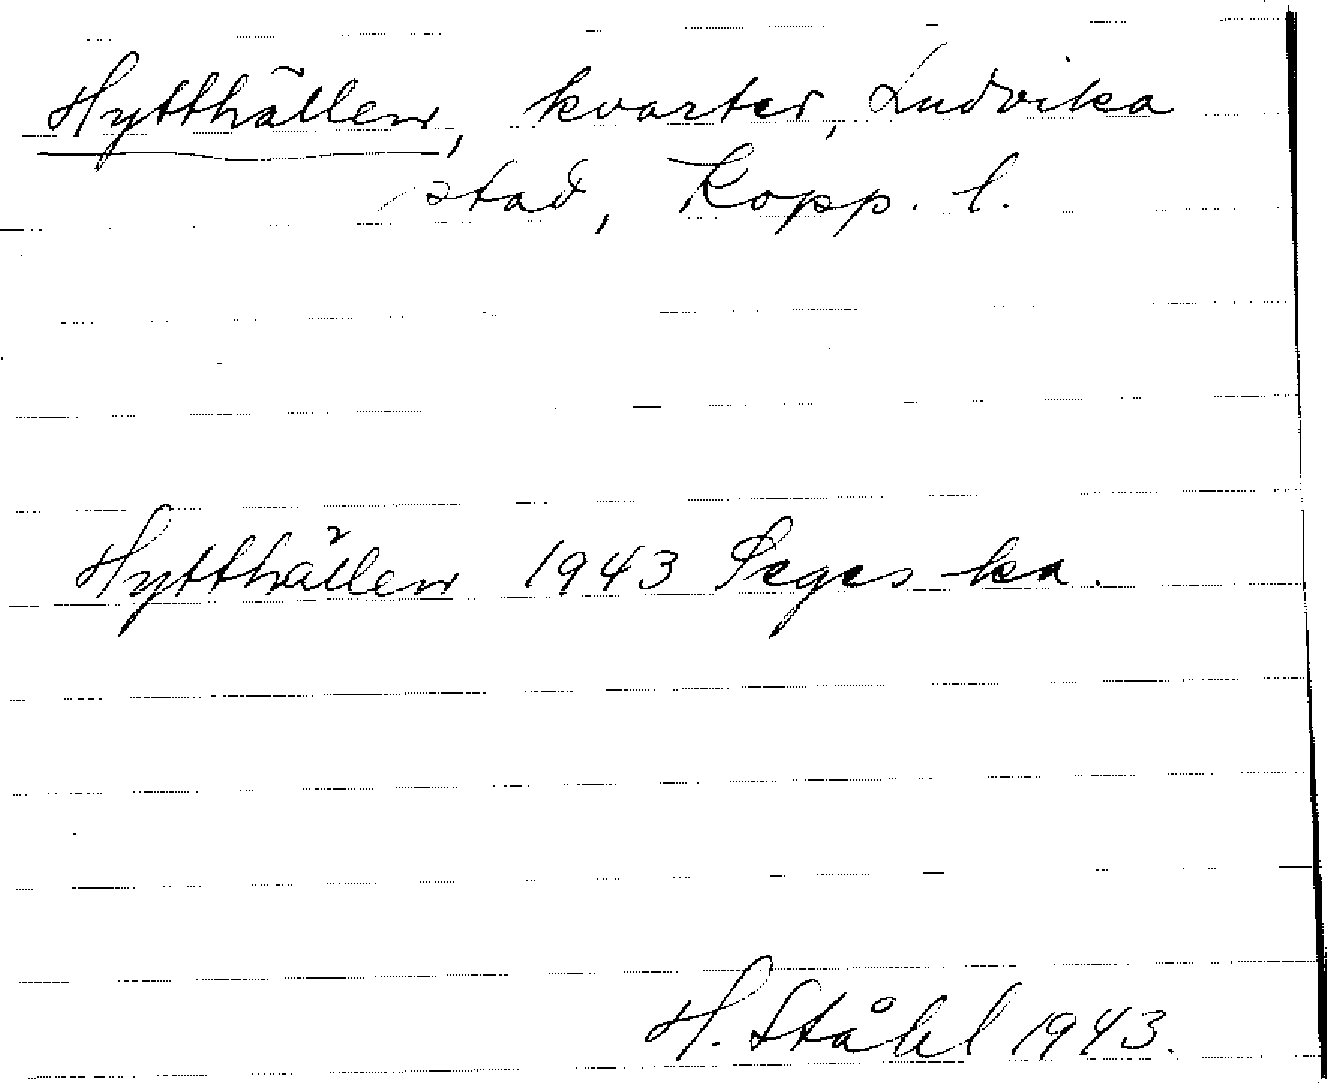 Hytthällen, kvarter, Ludvika
stad, Kopp. l.
Hytthällen 1943 Seges ka.
H. Ståhl 1943.